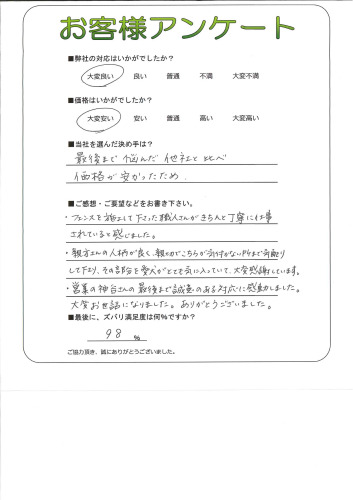 お客様アンケート
■弊社の対応はいかがでしたか?
大変良い 良い 普通 不満 大変不満
■価格はいかがでしたか?
大変安い 安い 普通 高い 大変高い
■当社を選んだ決め手は?
最後まで悩んだ他社と比べ
価格が安かったため
■ご感想・ご要望などをお書き下さい。
・フェンスを施工して下さった職人さんがきちんと丁寧に仕事
されていると感じました。
・親方さんの人柄が良く、親切でこちらが気付かない所まで
して下さり、その部分を愛犬がとても気に入っていて、大変感謝しています。
・営業の神谷さんの最後まで誠意のある対応に感動しました。
大変お世話になりました。ありがとうございました。
■最後に、ズバリ満足度は何%ですか?
98 %
ご協力頂き、誠にありがとうございました。